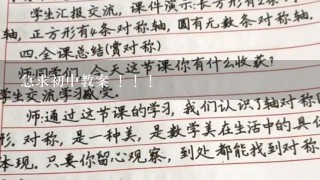 学生汇报交流,课件演示:长方形有2条
轴,正方形有4条对称轴,圆有无数条对称轴.
四.全课总结(赏对称)
师:同学们,今天这节课你有什么收获?
急求初中教案!!!
学生交流学习感受.
师:通过这节课的学习,我们认识了轴对称图
形.对称,是一种美,是数学美在生活中的具体
体现.只要你留心观察,到处都能找到对称